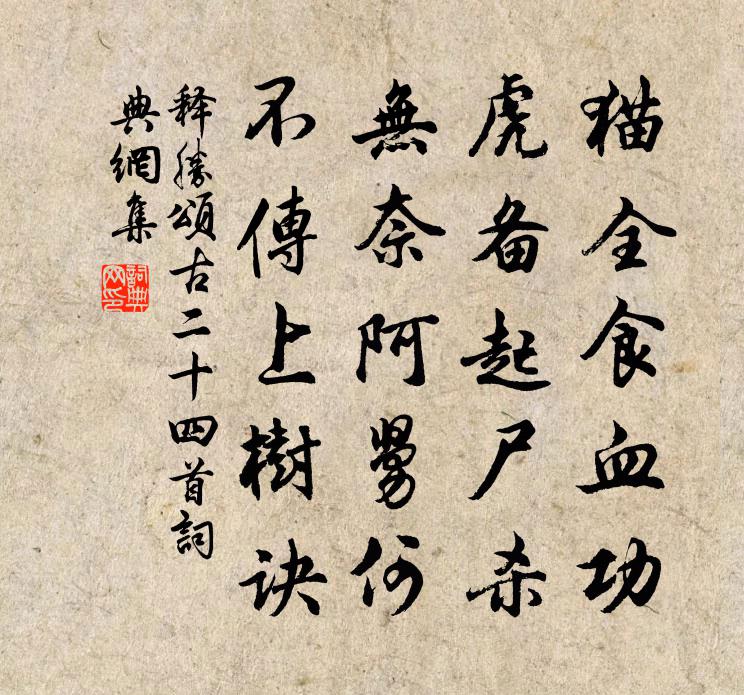 猫全食血功
虎备起尸杀
無奈阿舅何
不傳上樹诀
释勝頌古二十四首詞
典網集
詞典網印